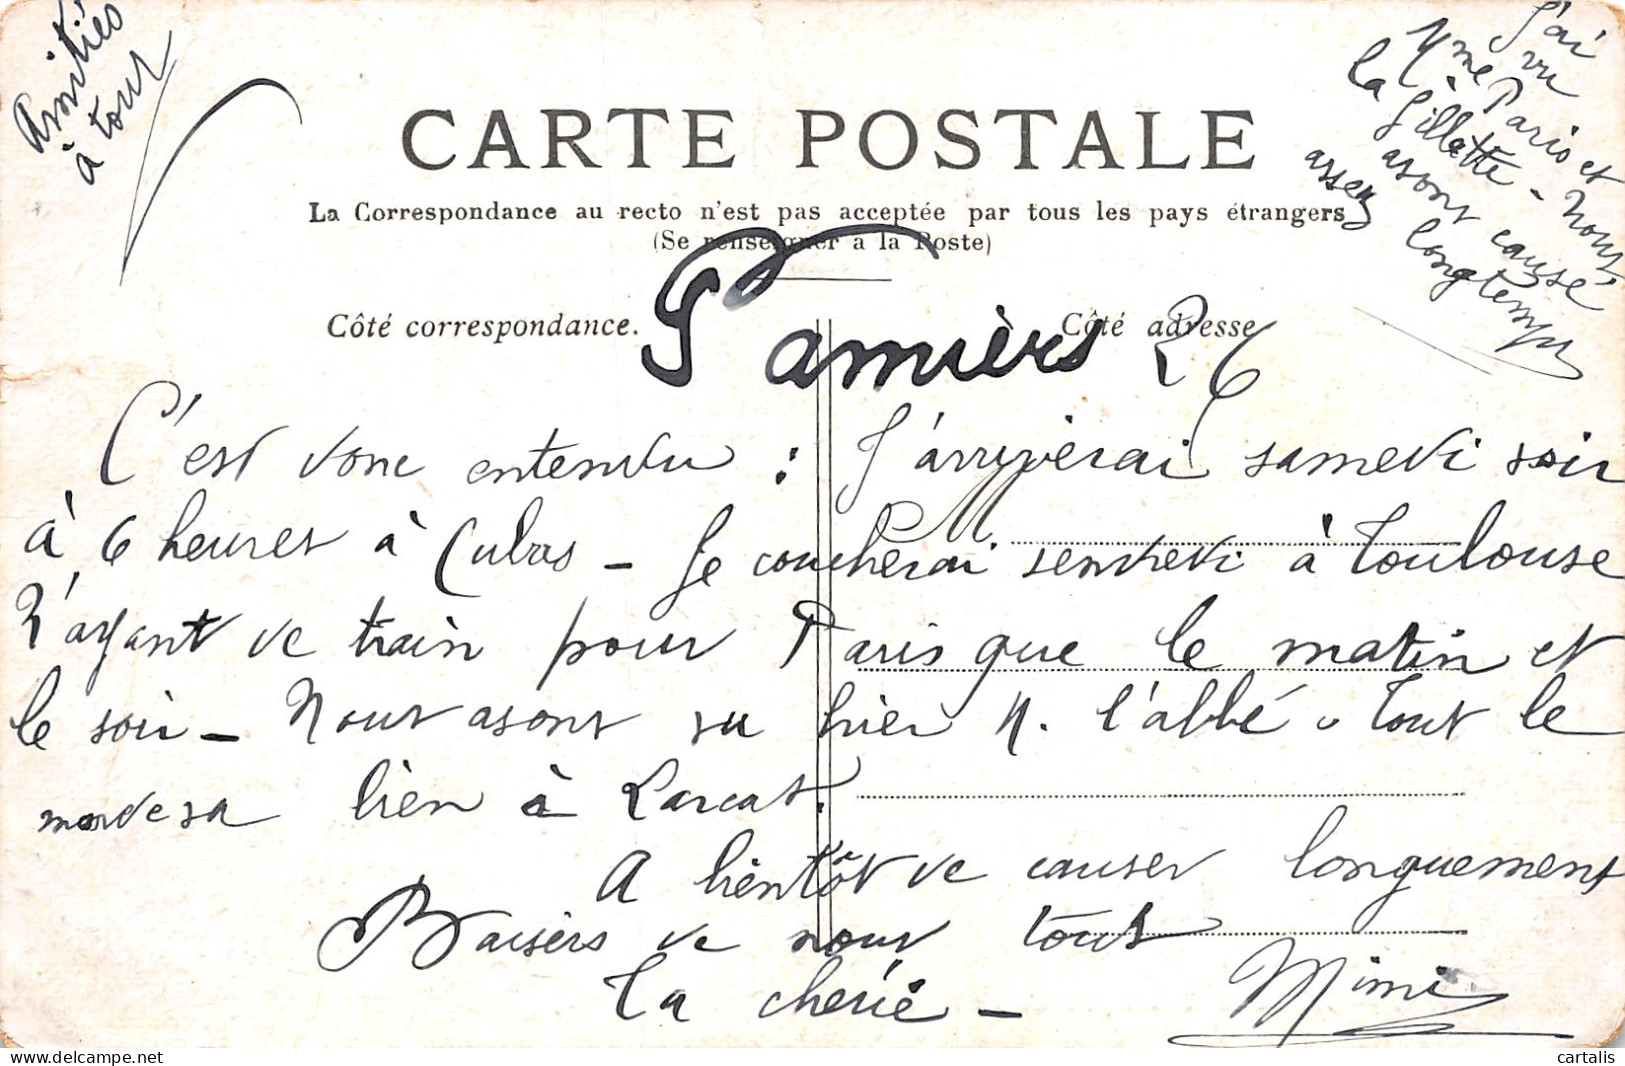 Amitiés
à tous
J'ai
vu
Mme Paris et
la Gillette - Nous
avons causé
assez longtemps
CARTE POSTALE
La Correspondance au recto n'est pas acceptée par tous les pays étrangers
(Se renseigner à la Poste)
Côté correspondance.
Côté adresse
Pamiers 26
C'est donc entendu : J'arriverai samedi soir
à 6 heures à Cubas - Je coucherai vendredi à Toulouse
N'ayant de train pour Paris que le matin et
le soir - Nous avons vu hier M. l'abbé. Tout le
monde va bien à Larcat.
A bientôt de causer longuement
Baisers de nous tous
Ta chérie -
Mimi
cartalis